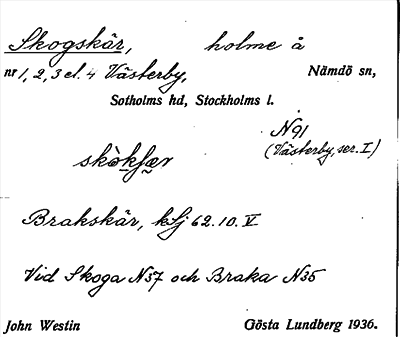 Skogskär, holme å
nr 1, 2, 3 el. 4 Västerby, Nämdö sn,
Sotholms hd, Stockholms l.
N91
(Västerby, ser. I)
skòkʃær
Brakskär, kfj 62.10.V
Vid Skoga N37 och Braka N35
John Westin Gösta Lundberg 1936.